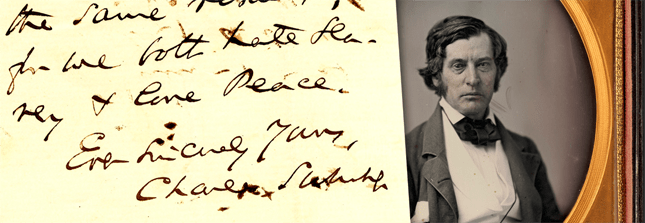 the same
for we both hate Sla-
very & love Peace.
Ever Sincerely Yours,
Charles Sumner